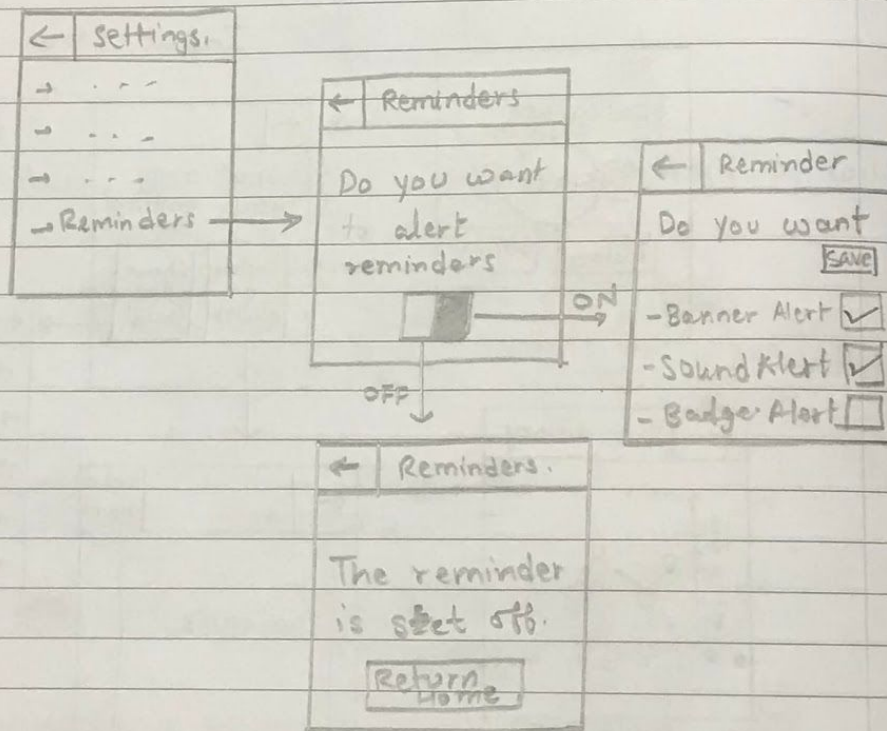 ← Settings.
→ - - -
→ - - -
→ - - -
→ Reminders
← Reminders
Do you want
to alert
reminders
ON
OFF
← Reminder
Do you want
SAVE
- Banner Alert ✓
- Sound Alert ✓
- Badge Alert
← Reminders.
The reminder
is set off.
Return
Home